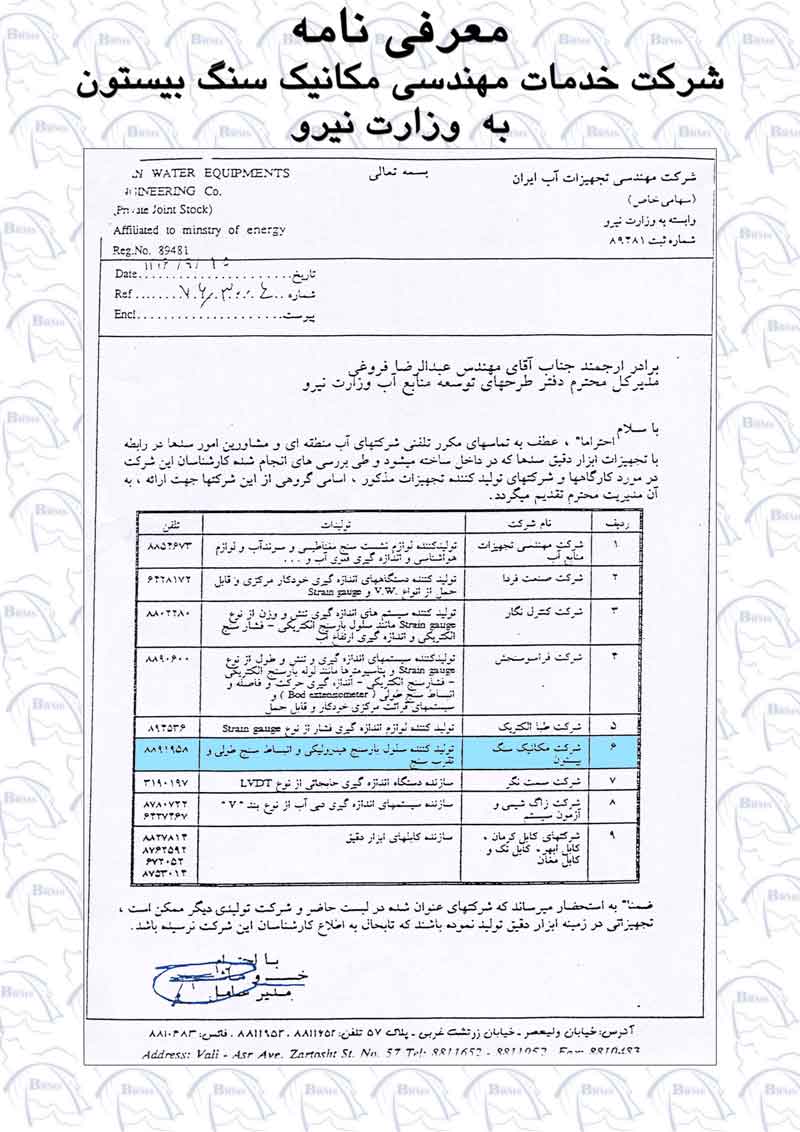 معرفی نامه
شرکت خدمات مهندسی مکانیک سنگ بیستون
به وزارت نیرو
بسمه تعالی
شرکت مهندسی تجهیزات آب ایران
(سهامی خاص)
وابسته به وزارت نیرو
شماره ثبت ۸۹۴۸۱
WATER EQUIPMENTS
Co.
Joint Stock)
Affiliated to minstry of energy
Reg.No. 89481
Date
تاریخ
Ref
شماره
Encl
پیوست
برادر ارجمند جناب آقای مهندس عبدالرضا فروغی
مدیرکل محترم دفتر طرحهای توسعه منابع آب وزارت نیرو
با سلام
احتراما" ، عطف به تماسهای مکرر تلفنی شرکتهای آب منطقه ای و مشاورین امور سدها در رابطه
با تجهیزات ابزار دقیق سدها که در داخل ساخته میشود و طی بررسی های انجام شده کارشناسان این شرکت
در مورد کارگاهها و شرکتهای تولید کننده تجهیزات مذکور ، اسامی گروهی از این شرکتها جهت ارائه ، به
آن مدیریت محترم تقدیم میگردد.
ردیف نام شرکت تولیدات تلفن
۱ شرکت مهندسی تجهیزات تولیدکننده لوازم نشست سنج مغناطیسی و سرندآب و لوازم ۸۸۵۴۶۷۳
منابع آب هواشناسی و اندازه گیری فنری آب و ...
۲ شرکت صنعت فردا تولید کننده دستگاههای اندازه گیری خودکار مرکزی و قابل ۶۴۲۸۱۷۲
حمل از انواع V.W. و Strain gauge
۳ شرکت کنترل نگار تولید کننده سیستم های اندازه گیری تنش و وزن از نوع ۸۸۰۲۲۸۰
Strain gauge مانند سلول بارسنج الکتریکی - فشار سنج
الکتریکی و اندازه گیری ارتفاع آب
۴ شرکت فراسوسنجش تولیدکننده سیستمهای اندازه گیری و تنش و طول از نوع ۸۸۹۰۶۰۰
Strain gauge و پتاسیومترها مانند لوله بارسنج الکتریکی
- فشارسنج الکتریکی - اندازه گیری حرکت و فاصله و
انبساط سنج طولی ( Bod extensometer ) و
سیستمهای قرائت مرکزی خودکار و قابل حمل
۵ شرکت طبا الکتریک تولید کننده لوازم اندازه گیری فشار از نوع Strain gauge ۸۹۲۵۳۶
۶ شرکت مکانیک سنگ تولید کننده سلول بارسنج هیدرولیکی و انبساط سنج طولی و ۸۸۹۱۹۵۸
بیستون تقرب سنج
۷ شرکت سمت نگر سازنده دستگاه اندازه گیری جابجائی از نوع LVDT ۳۱۹۰۱۹۷
۸ شرکت زاگ شیمی و سازنده سیستمهای اندازه گیری دبی آب از نوع بند "V" ۸۷۸۰۷۲۲
آزمون سیستم ۶۴۲۷۴۶۷
۹ شرکتهای کابل کرمان ، سازنده کابلهای ابزار دقیق ۸۸۲۷۸۱۴
کابل ابهر ، کابل تک و ۸۷۶۲۵۹۲
کابل مغان ۶۷۲۰۵۲
۸۷۵۳۰۱۴
ضمنا" به استحضار میرساند که شرکتهای عنوان شده در لیست حاضر و شرکت تولیدی دیگر ممکن است ،
تجهیزاتی در زمینه ابزار دقیق تولید نموده باشند که تابحال به اطلاع کارشناسان این شرکت نرسیده باشد.
با احترام
مدیر عامل
آدرس: خیابان ولیعصر ـ خیابان زرتشت غربی ـ پلاک ۵۷ تلفن: ۸۸۱۱۶۵۲ ـ ۸۸۱۱۹۵۲ ، فاکس: ۸۸۱۰۴۸۳
Address: Vali - Asr Ave. Zartosht St. No. 57 Tel: 8811652 - 8811952 Fax 8810483